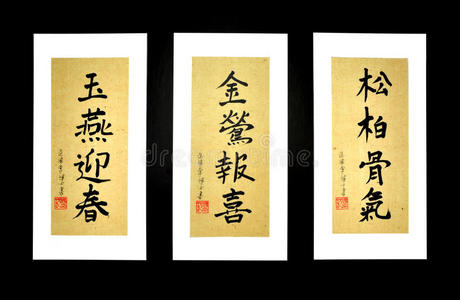 玉燕迎春
金鶯報喜
松柏骨氣
dreamstime